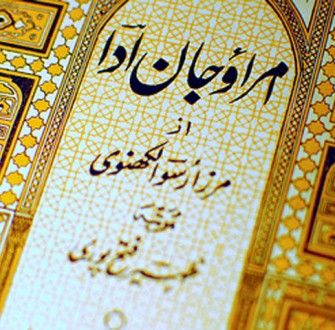 امراؤ جان ادا
از
مرزا رسوا لکھنوی
مرتبہ
ظہیر فتح پوری